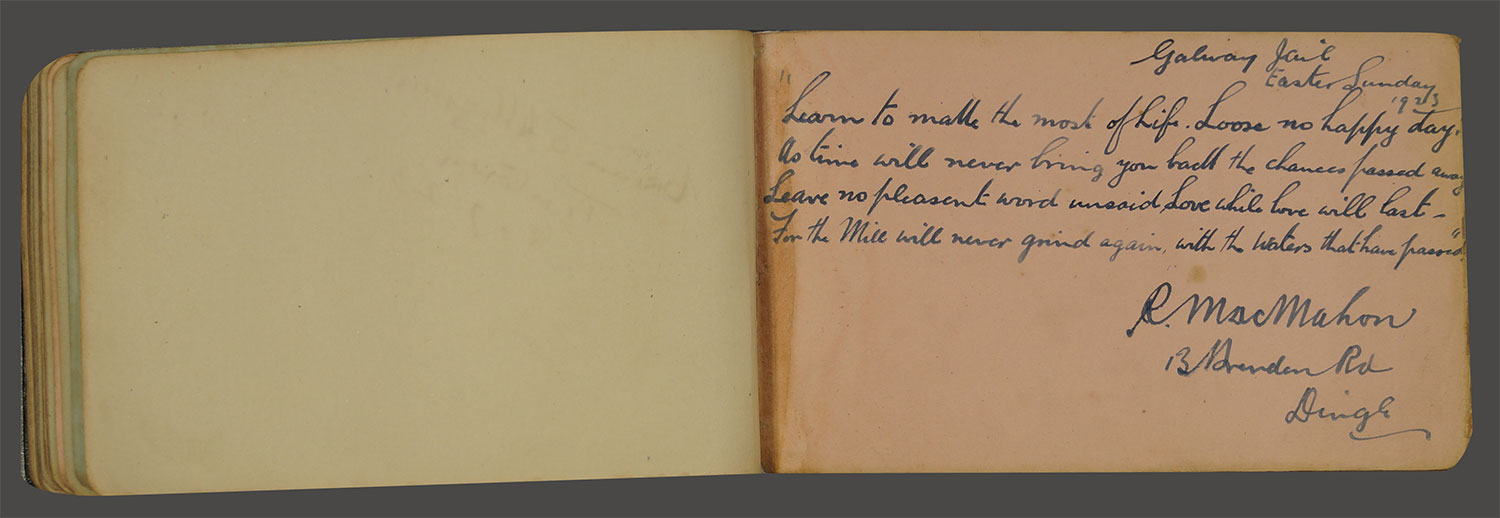 Galway Jail
Easter Sunday
1923
"Learn to make the most of Life. Loose no happy day.
As time will never bring you back the chances passed away
Leave no pleasent word unsaid, Love while love will last –
For the Mill will never grind again, with the waters that have passed"
R. MacMahon
13 Brendan Rd
Dingle